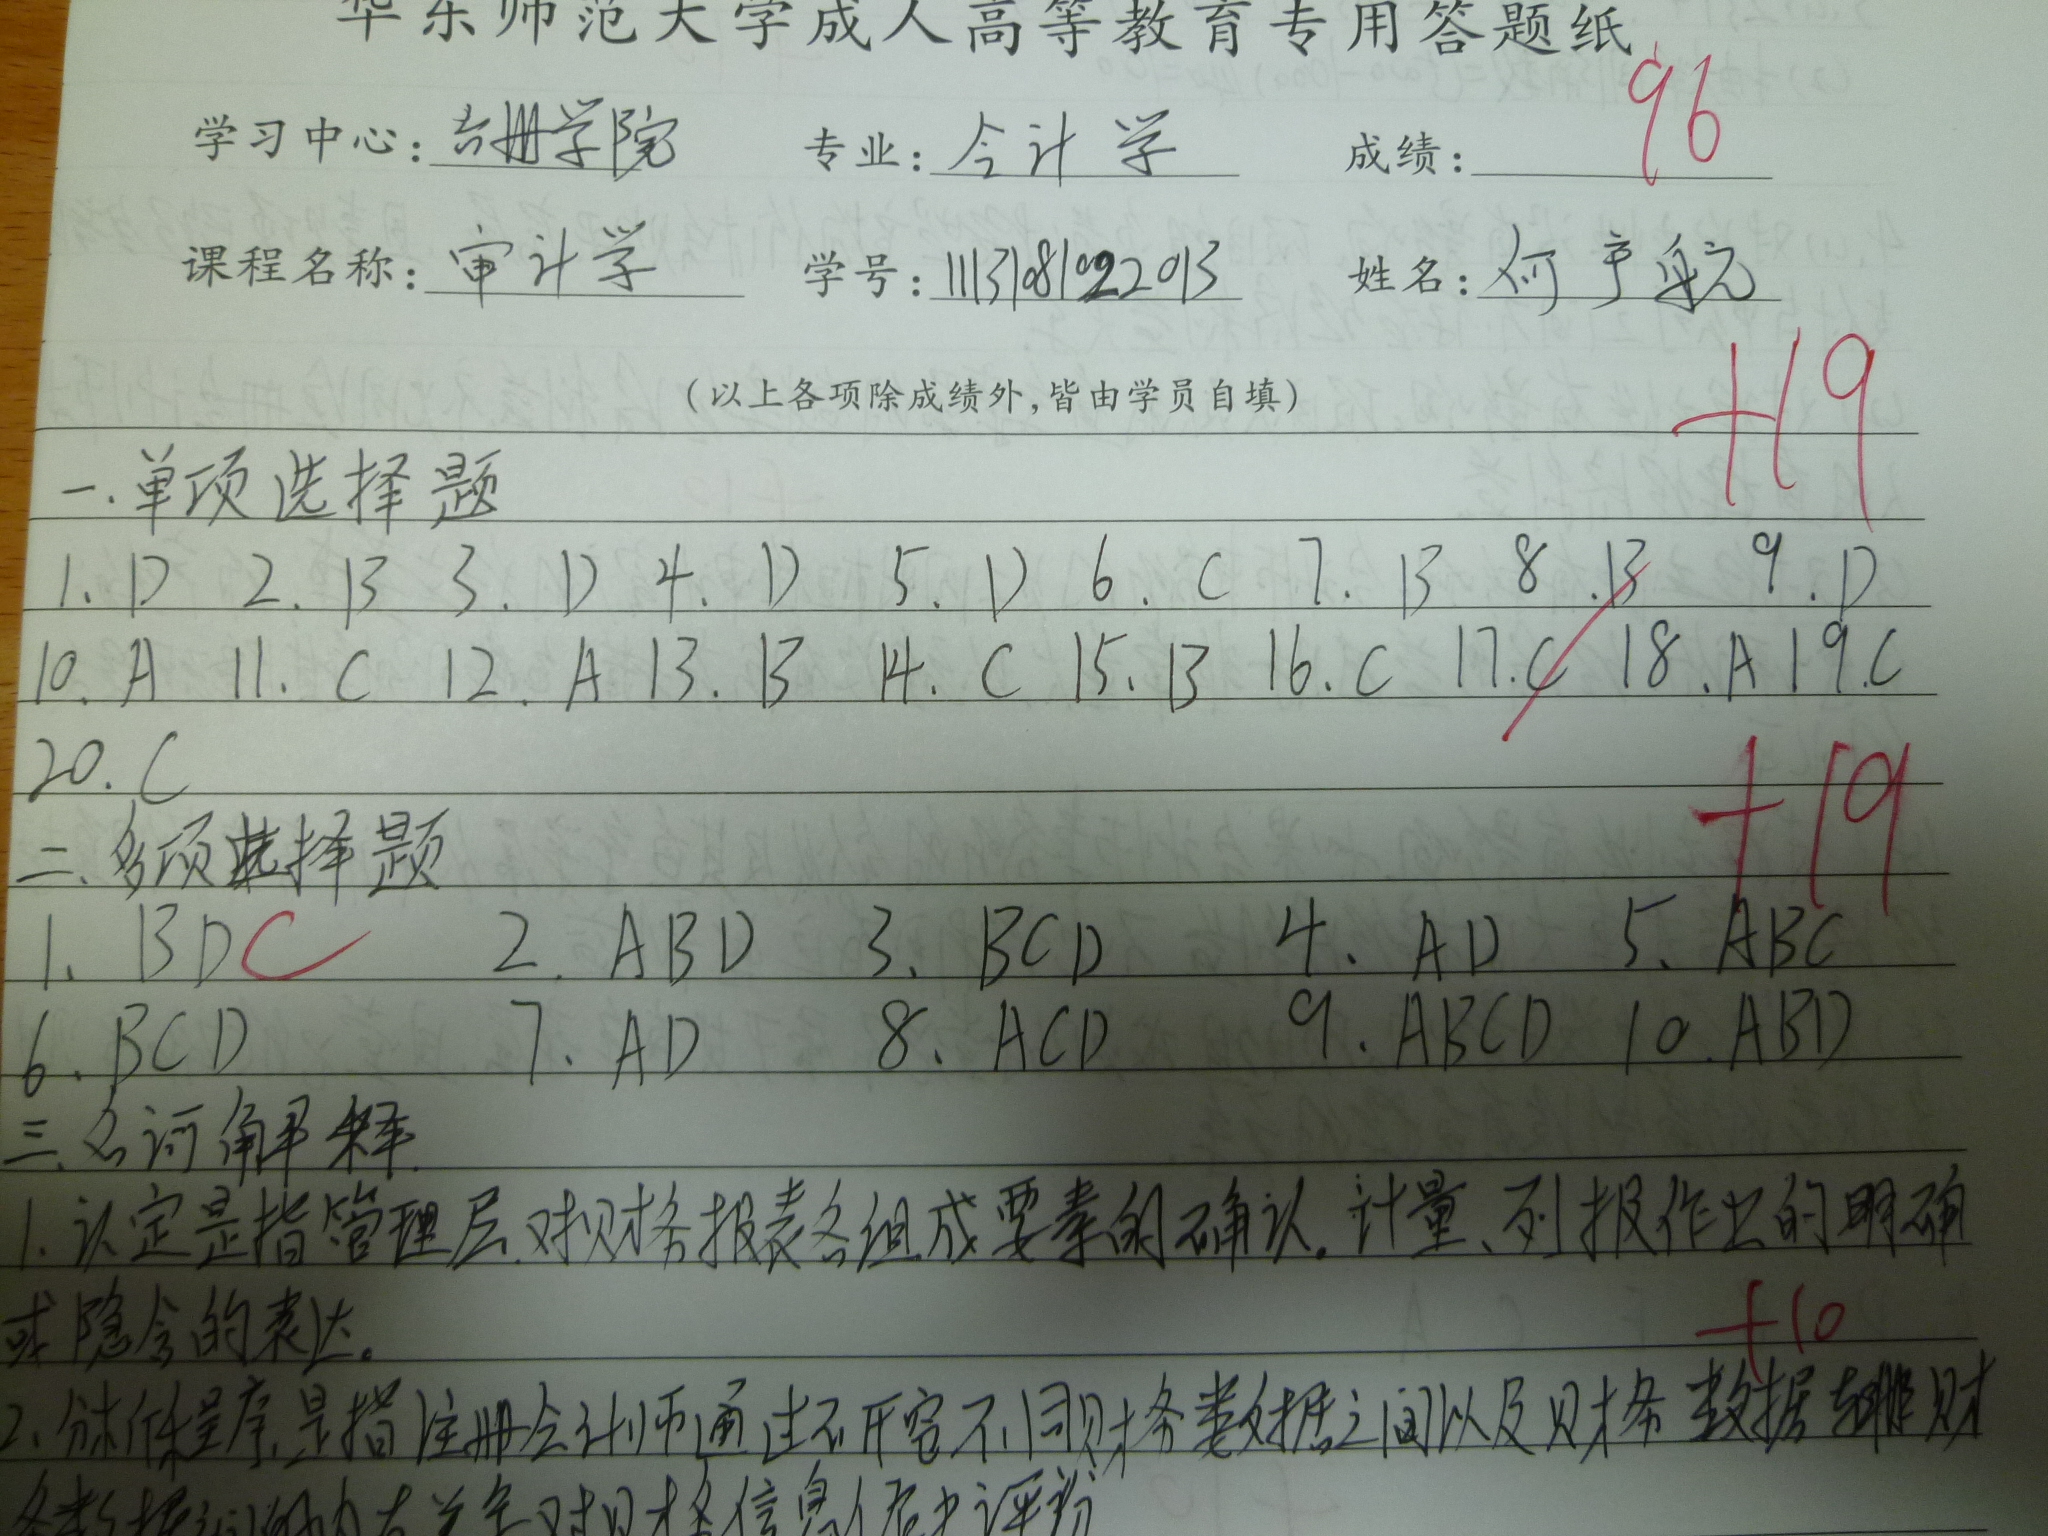 华东师范大学成人高等教育专用答题纸
学习中心: 学院 专业: 会计学 成绩: 96
课程名称: 审计学 学号: 姓名: 何
(以上各项除成绩外,皆由学员自填)
+19
一.单项选择题
1. D 2. B 3. D 4. D 5. D 6. C 7. B 8. B 9. D
10. A 11. C 12. A 13. B 14. C 15. B 16. C 17. C 18. A 19. C
20. C
+19
二、多项选择题
1. BDC 2. ABD 3. BCD 4. AD 5. ABC
6. BCD 7. AD 8. ACD 9. ABCD 10. ABD
三.名词解释
1.认定是指管理层对财务报表各组成要素的确认.计量、列报作出的明确
或隐含的表达。
+10
2.分析程序是指注册会计师通过研究不同财务数据之间以及财务数据与非财
务数据之间的内在关系对财务信息作出评价